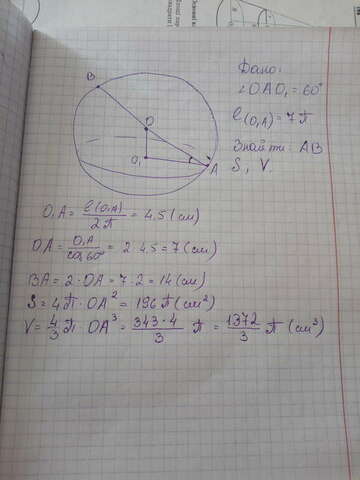 Дано:
∠OAO₁ = 60°
ℓ(O₁A) = 7π
Знайти: AB
S, V.
B
O
O₁
A
O₁A = ℓ(O₁A)/2π = 4.5 (см)
OA = O₁A/cos60° = 2·4.5 = 7 (см)
BA = 2·OA = 7·2 = 14 (см)
S = 4π·OA² = 196π (см²)
V = 4/3 π OA³ = 343·4/3 π = 1372/3 π (см³)